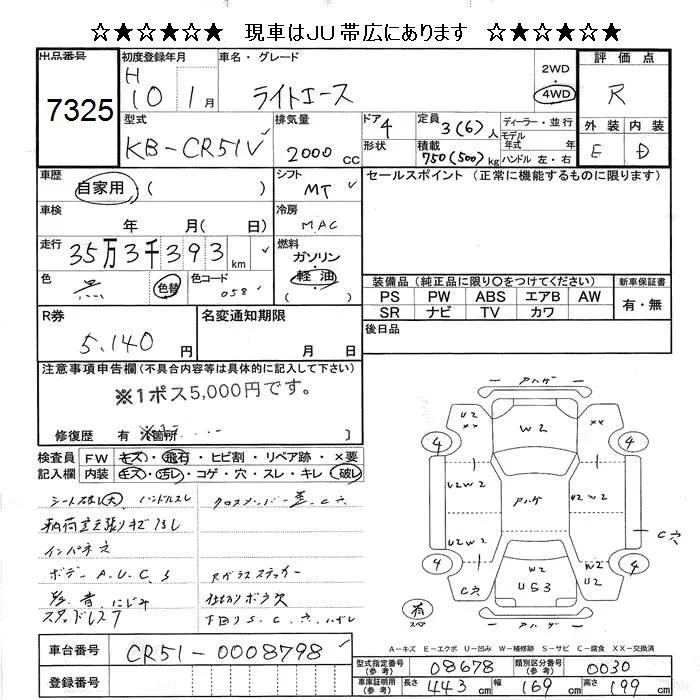 ☆★☆★☆★ 現車はJU帯広にあります ☆★☆★☆★
出品番号 初度登録年月 車名・グレード 評価点
7325 H 10 1月 ライトエース 2WD 4WD R
型式 排気量 ドア 定員 ディーラー・並行 外装 内装
KB-CR51V 2000cc 4 3(6)人 モデル年式 年
形状 積載 750(500)kg ハンドル 左・右 E D
車歴 シフト セールスポイント (正常に機能するものに限ります)
自家用 ( ) MT
車検 冷房
年 月( 日) MAC
走行 燃料
35万3千393km ガソリン・軽油 ( )
色 色替 色コード 装備品 (純正品に限り○をつけてください) 新車保証書
黒 058 PS PW ABS エアB AW 有・無
SR ナビ TV カワ
R券 名変通知期限 後日品
5,140円 月 日
注意事項申告欄 (不具合内容等は具体的に記入して下さい)
※1ポス5,000円です。
修復歴 有
検査員 FW キズ・飛石・ヒビ割・リペア跡・×要
記入欄 内装 キズ・汚し・コゲ・穴・スレ・キレ 破レ
シート破レ(大) ハンドルスレ
インパネ穴
ボデーA.U.C.S
スタッドレス7
アハゲ
U2 XX W2 XX
4 4
U2W2 W2
アハゲ
U2W2 W2
C穴
4 4
W2 W2
C穴 U53 U2
有 スペア
アハゲ
A-キズ E-エクボ U-凹み W-補修跡 S-サビ C-腐食 XX-交換済
車台番号 CR51-0008798
型式指定番号(参考) 08678 類別区分番号(参考) 0030
登録番号
車庫証明用(参考) 長さ 443cm 幅 169cm 高さ 199cm